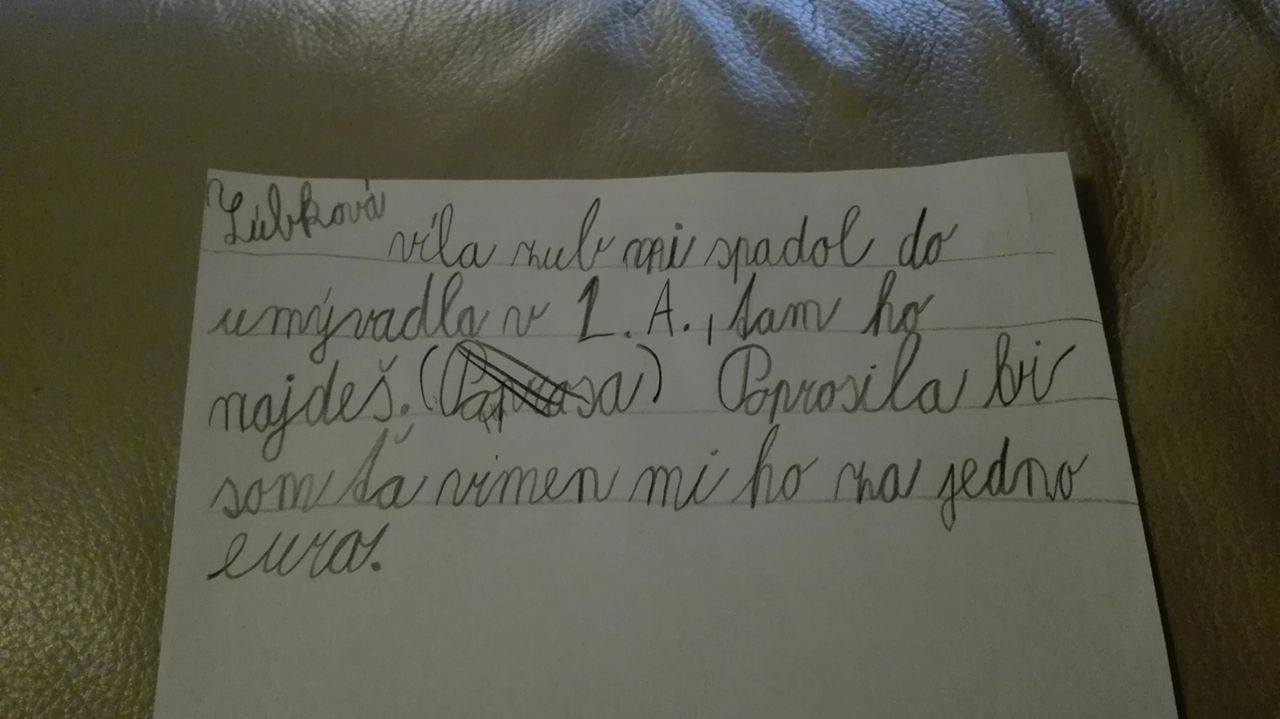 Zúbková víla zub mi spadol do
umývadla v 1. A., tam ho
najdeš. ( ) Poprosila bi
som ťa vimen mi ho za jedno
eura.